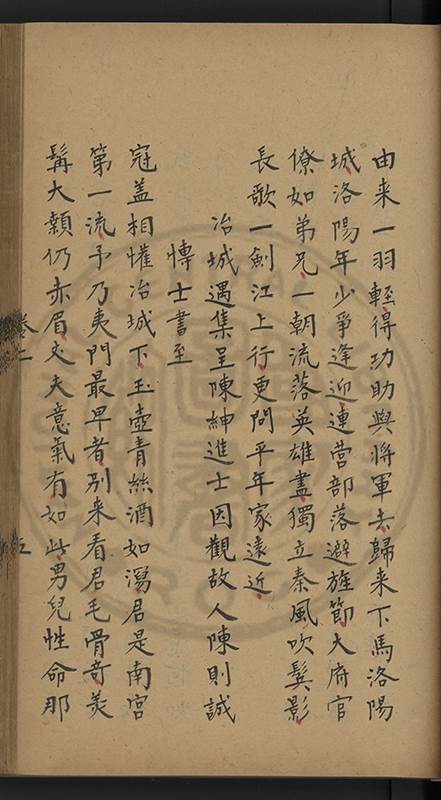 由来一羽輕得功助與將軍去歸来下馬洛陽
城洛陽年少爭逢迎連营部落避旌節大府官
僚如弟兄一朝流落英雄盡獨立秦風吹鬓影
長歌一劍江上行更問平年家遠近
冶城遇集呈陳紳進士因觀故人陳則誠
博士書至
冠盖相懽冶城下玉壺青絲酒如瀉君是南宮
第一流予乃夷門最早者别来看君毛骨奇羡
髯大顙仍赤眉丈夫意氣有如此男兒性命那
卷二